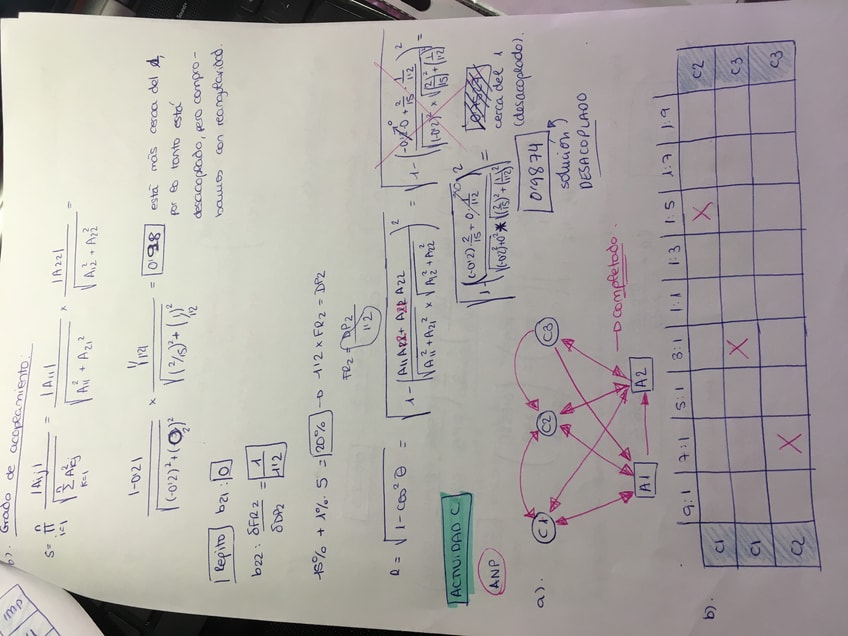 b). Grado de acoplamiento.
S = n π i=1 |Aij| / √(n Σ k=1 A²kj) = |A11| / √(A²11 + A²21) × |A22| / √(A²12 + A²22) =
|-0'2| / √((-0'2)² + (0)²) × 1/1'12 / √((2/15)² + (1/1'12)²) = 0'98 está más cerca del 1,
por lo tanto está
desacoplado, pero compro-
bamos con reangularidad.
Repito b21: 0
b22: δFR2 / δDP2 = 1 / 1'12
15% + 1%. 5 = 20% → 1'12 × FR2 = DP2
FR2 = DP2 / 1'12
R = √(1 - cos² θ) = √(1 - (A11A12 + A21A22 / √(A²11 + A²21) × √(A²12 + A²22))²) =
√(1 - ((-0'2) · 2/15 + 0 · 1/1'12 / √((-0'2)² + 0²) * √((2/15)² + (1/1'12)²))²) =
0'9874
cerca del 1
(desacoplado).
solución)
DESACOPLADO
ACTIVIDAD C.
ANP
a).
C1 C2 C3
A1 A2
→ completado.
b)
9:1 7:1 5:1 3:1 1:1 1:3 1:5 1:7 1:9
C1 X C2
C1 X C3
C2 X C3